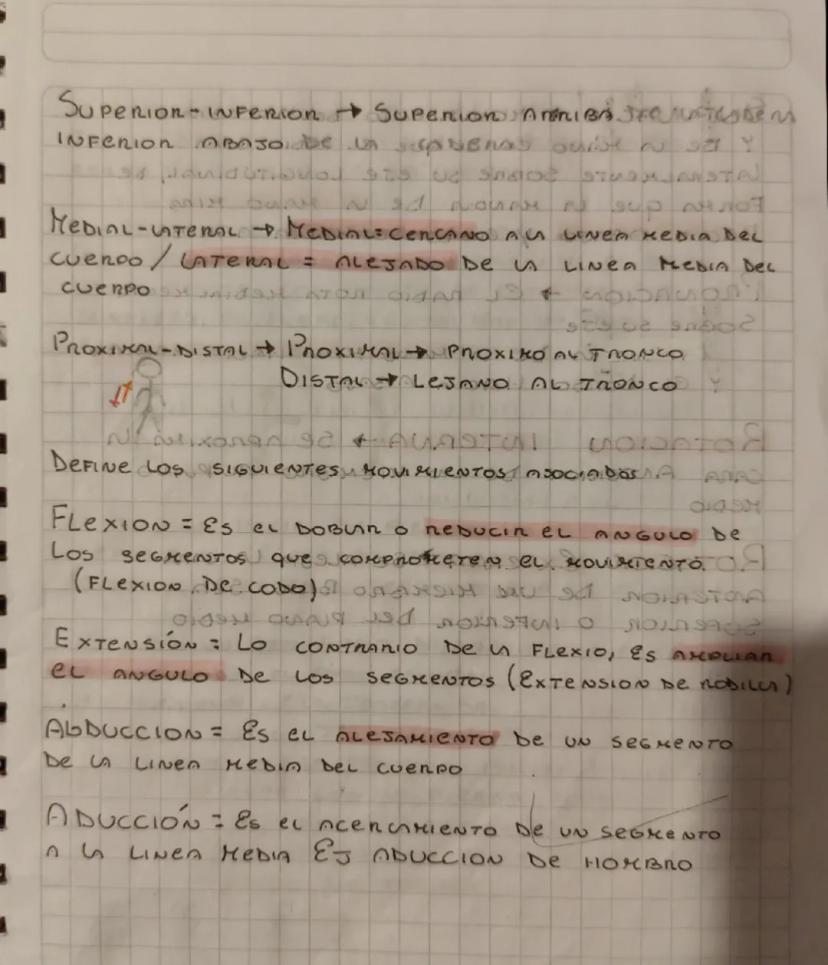 Superior-inferior → Superior arriba
inferior abajo
Medial-lateral → Medial=cercano a la linea media del
cuerpo / lateral = alejado de la linea media del
cuerpo
Proximal-distal → Proximal → proximo al tronco
Distal → lejano al tronco
Define los siguientes movimientos asociados
Flexion = Es el doblar o reducir el angulo de
los segmentos que comprometen el movimiento.
(Flexion de codo)
Extensión = Lo contrario de la flexio, es ampliar
el angulo de los segmentos (Extension de rodilla)
Abduccion = Es el alejamiento de un segmento
de la linea media del cuerpo
Aducción = Es el acercamiento de un segmento
a la linea media Ej aduccion de hombro